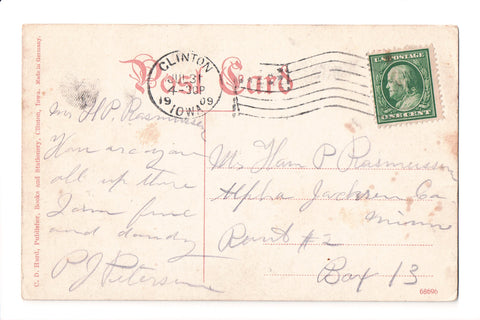 Post Card
CLINTON
JUL 31
4-30P
1909
IOWA
U.S. POSTAGE
ONE CENT
C. D. Hurd, Publisher, Books and Stationery, Clinton, Iowa. Made in Germany.
Mr H.P. Rasmussen
How are you
all up there
I am fine
and dandy
P J Petersen
Mr Hans P Rasmussen
Alpha Jackson Co
Minn
Rout #2
Box 13
68696